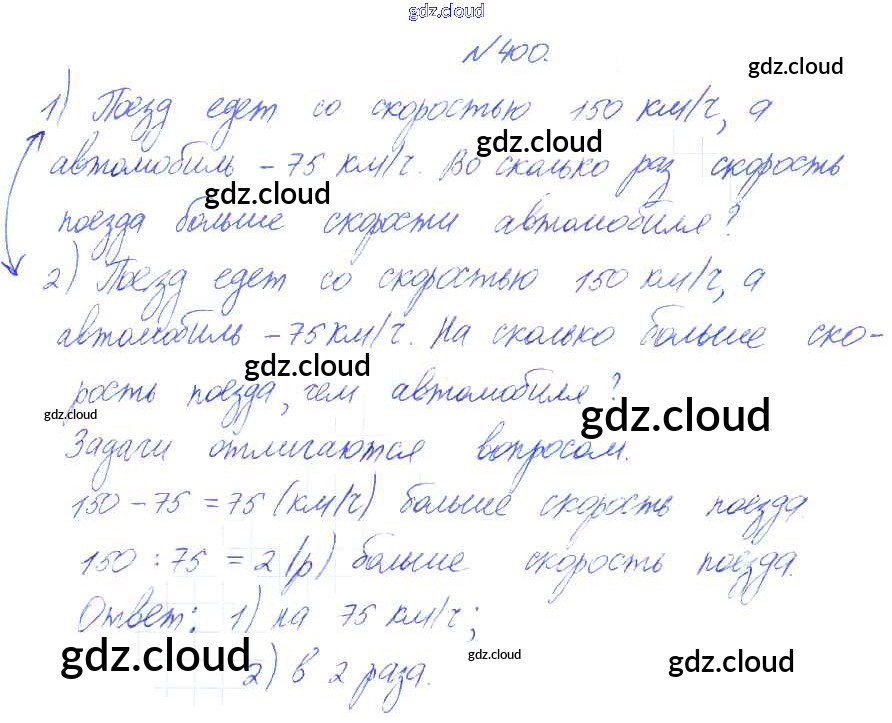 gdz.cloud
№400.
gdz.cloud
1) Поезд едет со скоростью 150 км/ч, а
gdz.cloud
автомобиль – 75 км/ч. Во сколько раз скорость
gdz.cloud
поезда больше скорости автомобиля?
2) Поезд едет со скоростью 150 км/ч, а
автомобиль – 75 км/ч. На сколько больше ско-
gdz.cloud
рость поезда, чем автомобиля?
gdz.cloud
gdz.cloud
Задачи отличаются вопросом.
150 – 75 = 75 (км/ч) больше скорость поезда.
150 : 75 = 2 (р) больше скорость поезда.
Ответ: 1) на 75 км/ч;
gdz.cloud
2) в 2 раза.
gdz.cloud
gdz.cloud